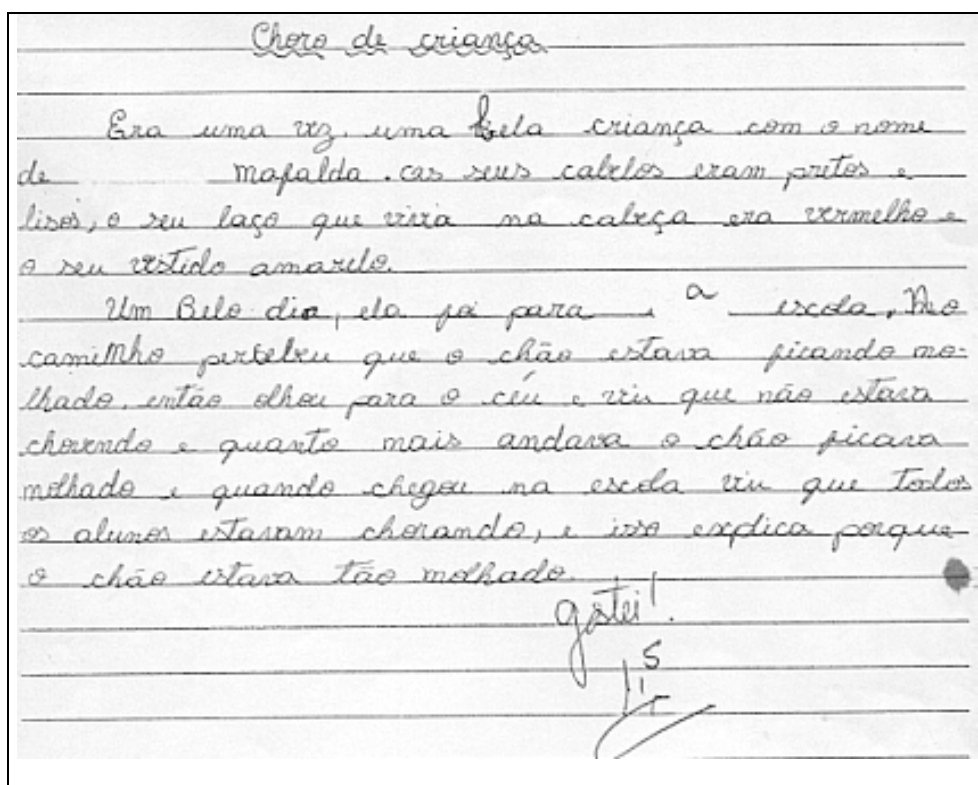 Choro de criança
Era uma vez, uma bela criança com o nome
de mafalda. os seus cabelos eram pretos e
lisos, o seu laço que vivia na cabeça era vermelho e
o seu vestido amarelo.
Um Belo dia, ela foi para a escola, No
camiMho percebeu que o chão estava ficando mo-
lhado, então olhou para o céu e viu que não estava
chovendo e quanto mais andava o chão ficava
molhado e quando chegou na escola viu que todos
os alunos estavam chorando, e isso explica porque
o chão estava tão molhado.
gostei!
1,5